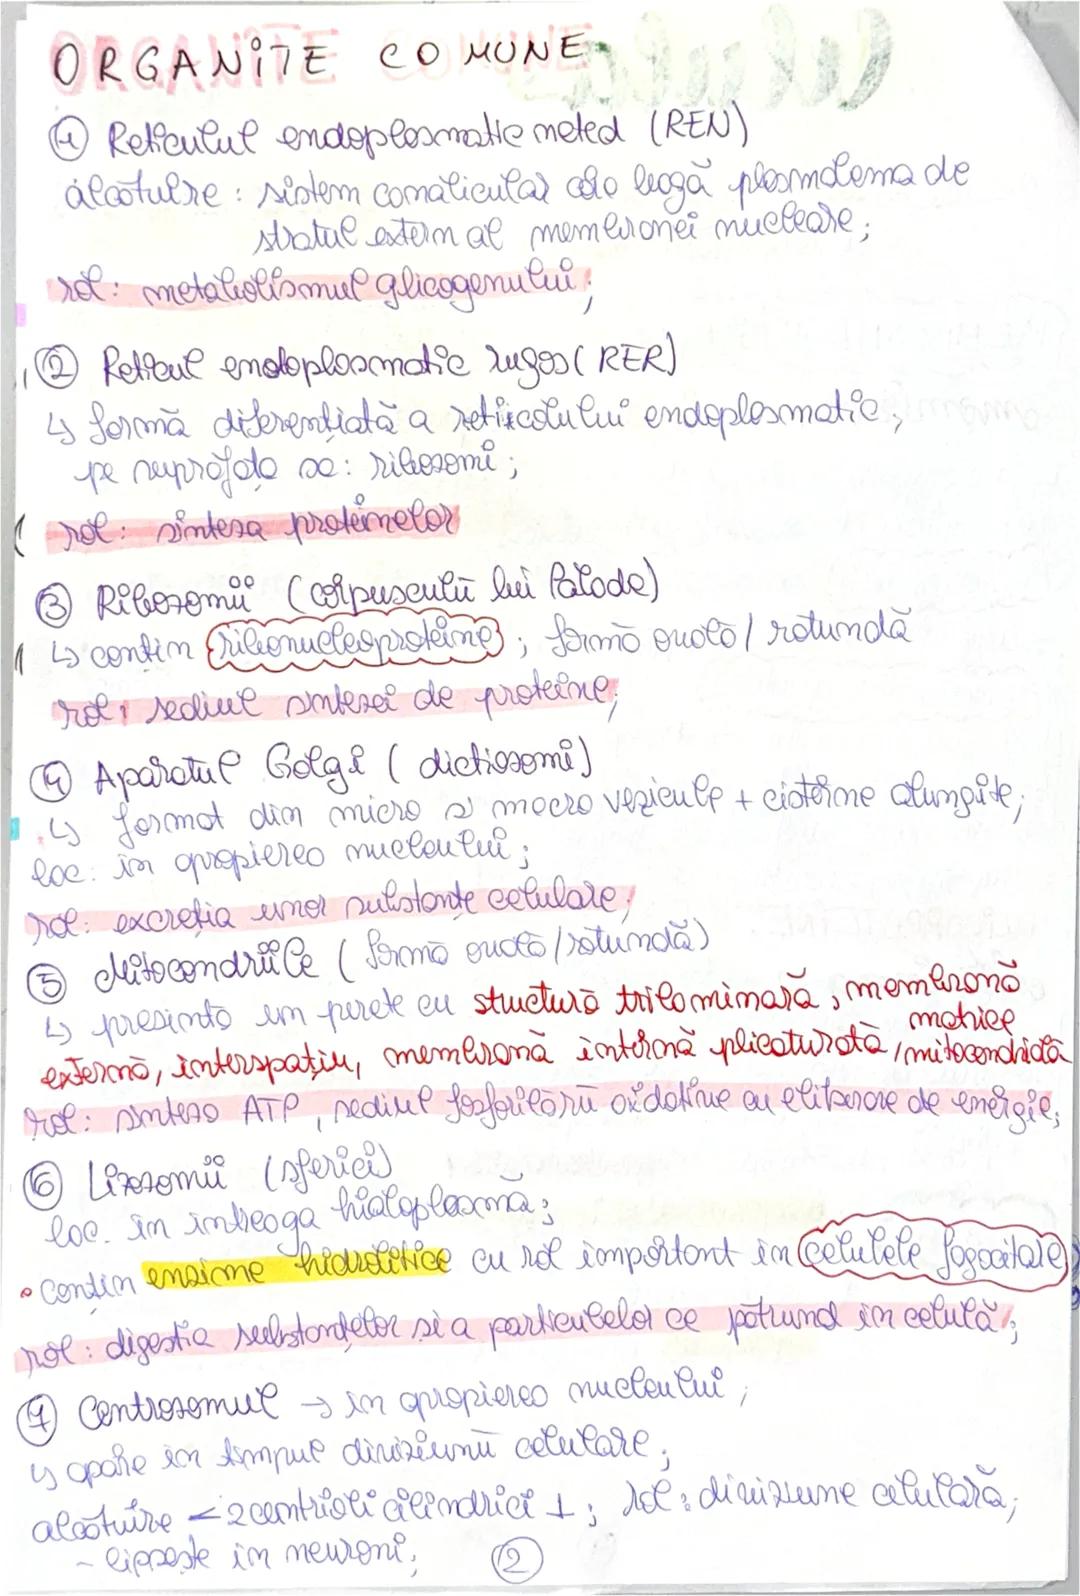 ORGANITE COMUNE
① Reticulul endoplasmatic neted (REN)
alcătuire: sistem canalicular care leagă plasmalema de
stratul extern al membranei nucleare;
rol: metabolismul glicogenului;
② Reticul endoplasmatic rugos (RER)
↳ formă diferențiată a reticolului endoplasmatic;
pe suprafața sa: ribozomi;
rol: sinteza proteinelor
③ Ribozomii (corpusculii lui Palade)
↳ conțin ribonucleoproteine; formă ovală / rotundă
rol: sediul sintezei de proteine;
④ Aparatul Golgi (dictiozomi)
↳ format din micro și macro vezicule + cisterne alungite;
loc: în apropierea nucleului;
rol: excreția unor substanțe celulare;
⑤ Mitocondriile (formă ovală/rotundă)
↳ prezintă un perete cu structură trilaminară, membrană
externă, interspațiu, membrană internă plicaturată, matrice mitocondrială
rol: sinteza ATP, sediul fosforilării oxidative cu eliberare de energie;
⑥ Lizozomii (sferici)
loc. în întreaga hialoplasmă;
• conțin enzime hidrolitice cu rol important în celulele fagocitare
rol: digestia substanțelor și a particulelor ce pătrund în celulă;
⑦ Centrozomul → în apropierea nucleului;
↳ apare în timpul diviziunii celulare;
alcătuire < 2 centrioli cilindrici ⊥; rol: diviziune celulară;
- lipsește în neuroni;
②